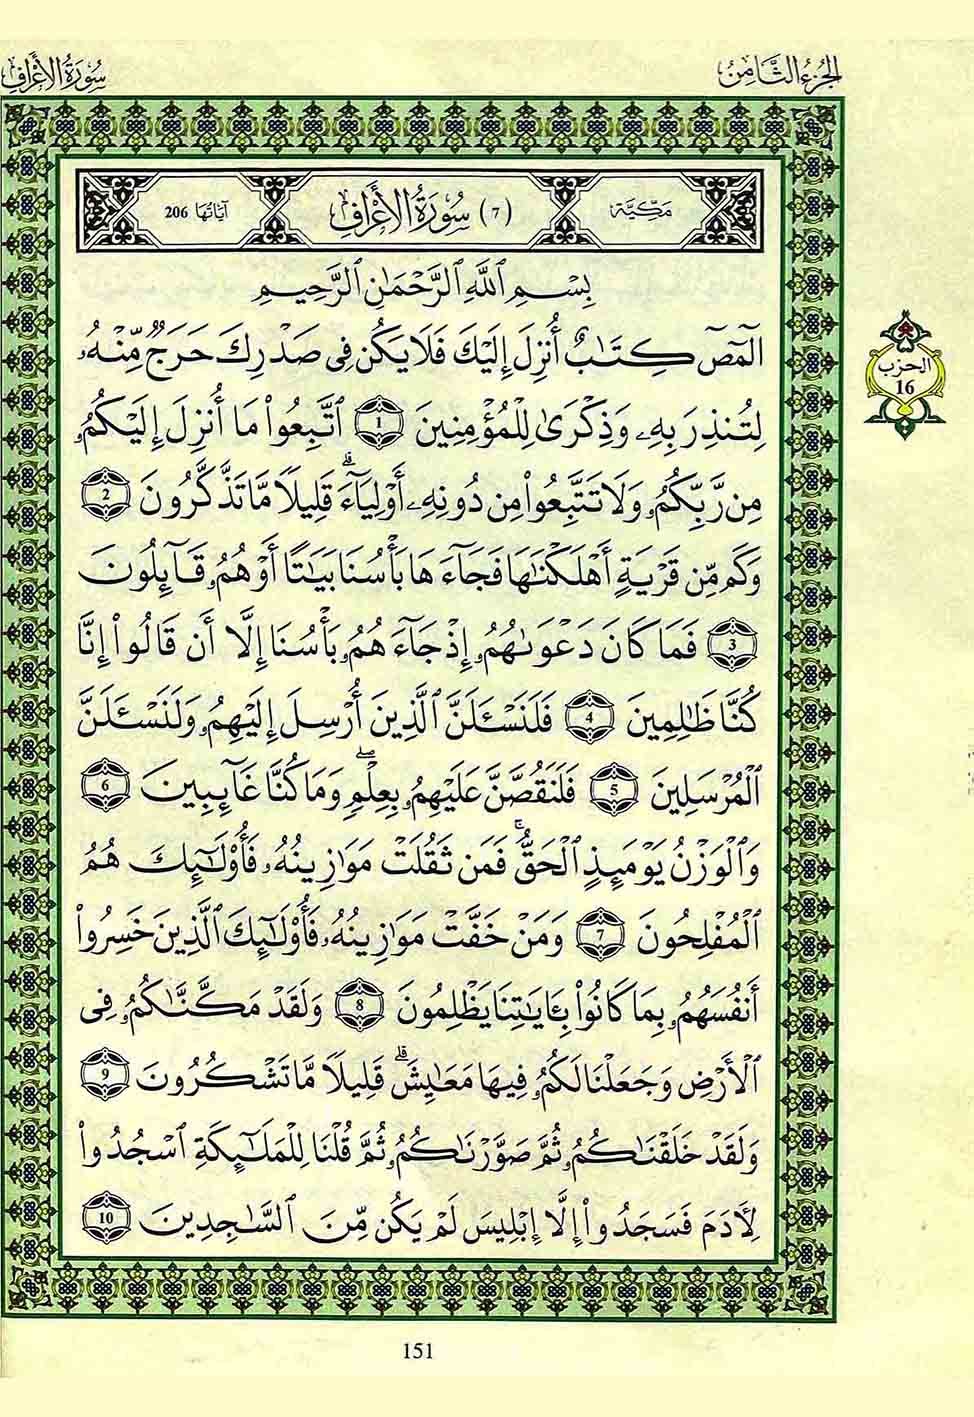 الجزء الثامن
سورة الأعراف
مكية
(٧) سورة الأعراف
آياتها 206
بِسْمِ اِ۬للَّهِ اِ۬لرَّحْمَٰنِ اِ۬لرَّحِيمِ
الحزب
16
أَلَٓمِّٓصَٓ كِتَٰبٌ أُنزِلَ إِلَيْكَ فَلَا يَكُن فِى صَدْرِكَ حَرَجٌ مِّنْهُۥ
لِتُنذِرَ بِهِۦ وَذِكْرَىٰ لِلْمُؤْمِنِينَ 1 اَ۪تَّبِعُوا۟ مَا أُنزِلَ إِلَيْكُمُۥ
مِن رَّبِّكُمُۥ وَلَا تَتَّبِعُوا۟ مِن دُونِهِۦ أَوْلِيَآءَ ۗ قَلِيلًا مَّا تَذَّكَّرُونَ 2
وَكَم مِّن قَرْيَةٍ أَهْلَكْنَٰهَا فَجَآءَهَا بَأْسُنَا بَيَٰتًا أَوْ هُمُۥ قَآئِلُونَ
3 فَمَا كَانَ دَعْوَىٰهُمُۥ إِذْ جَآءَهُمُۥ بَأْسُنَا إِلَّا أَن قَالُوا۟ إِنَّا
كُنَّا ظَٰلِمِينَ 4 فَلَنَسْـَٔلَنَّ اَ۬لَّذِينَ أُرْسِلَ إِلَيْهِمُۥ وَلَنَسْـَٔلَنَّ
اَ۬لْمُرْسَلِينَ 5 فَلَنَقُصَّنَّ عَلَيْهِمُۥ بِعِلْمٍ ۖ وَمَا كُنَّا غَآئِبِينَ 6
وَالْوَزْنُ يَوْمَئِذٍ اِ۬لْحَقُّ ۚ فَمَن ثَقُلَتْ مَوَٰزِينُهُۥ فَأُو۟لَٰٓئِكَ هُمُ
اُ۬لْمُفْلِحُونَ 7 وَمَنْ خَفَّتْ مَوَٰزِينُهُۥ فَأُو۟لَٰٓئِكَ اَ۬لَّذِينَ خَسِرُوا۟
أَنفُسَهُمُۥ بِمَا كَانُوا۟ بِـَٔايَٰتِنَا يَظْلِمُونَ 8 وَلَقَدْ مَكَّنَّٰكُمُۥ فِى
اِ۬لْأَرْضِ وَجَعَلْنَا لَكُمُۥ فِيهَا مَعَٰيِشَ ۗ قَلِيلًا مَّا تَشْكُرُونَ 9
وَلَقَدْ خَلَقْنَٰكُمُۥ ثُمَّ صَوَّرْنَٰكُمُۥ ثُمَّ قُلْنَا لِلْمَلَٰٓئِكَةِ اِ۟سْجُدُوا۟
لِأٓدَمَ فَسَجَدُوا۟ إِلَّا إِبْلِيسَ لَمْ يَكُن مِّنَ اَ۬لسَّٰجِدِينَ 10
151